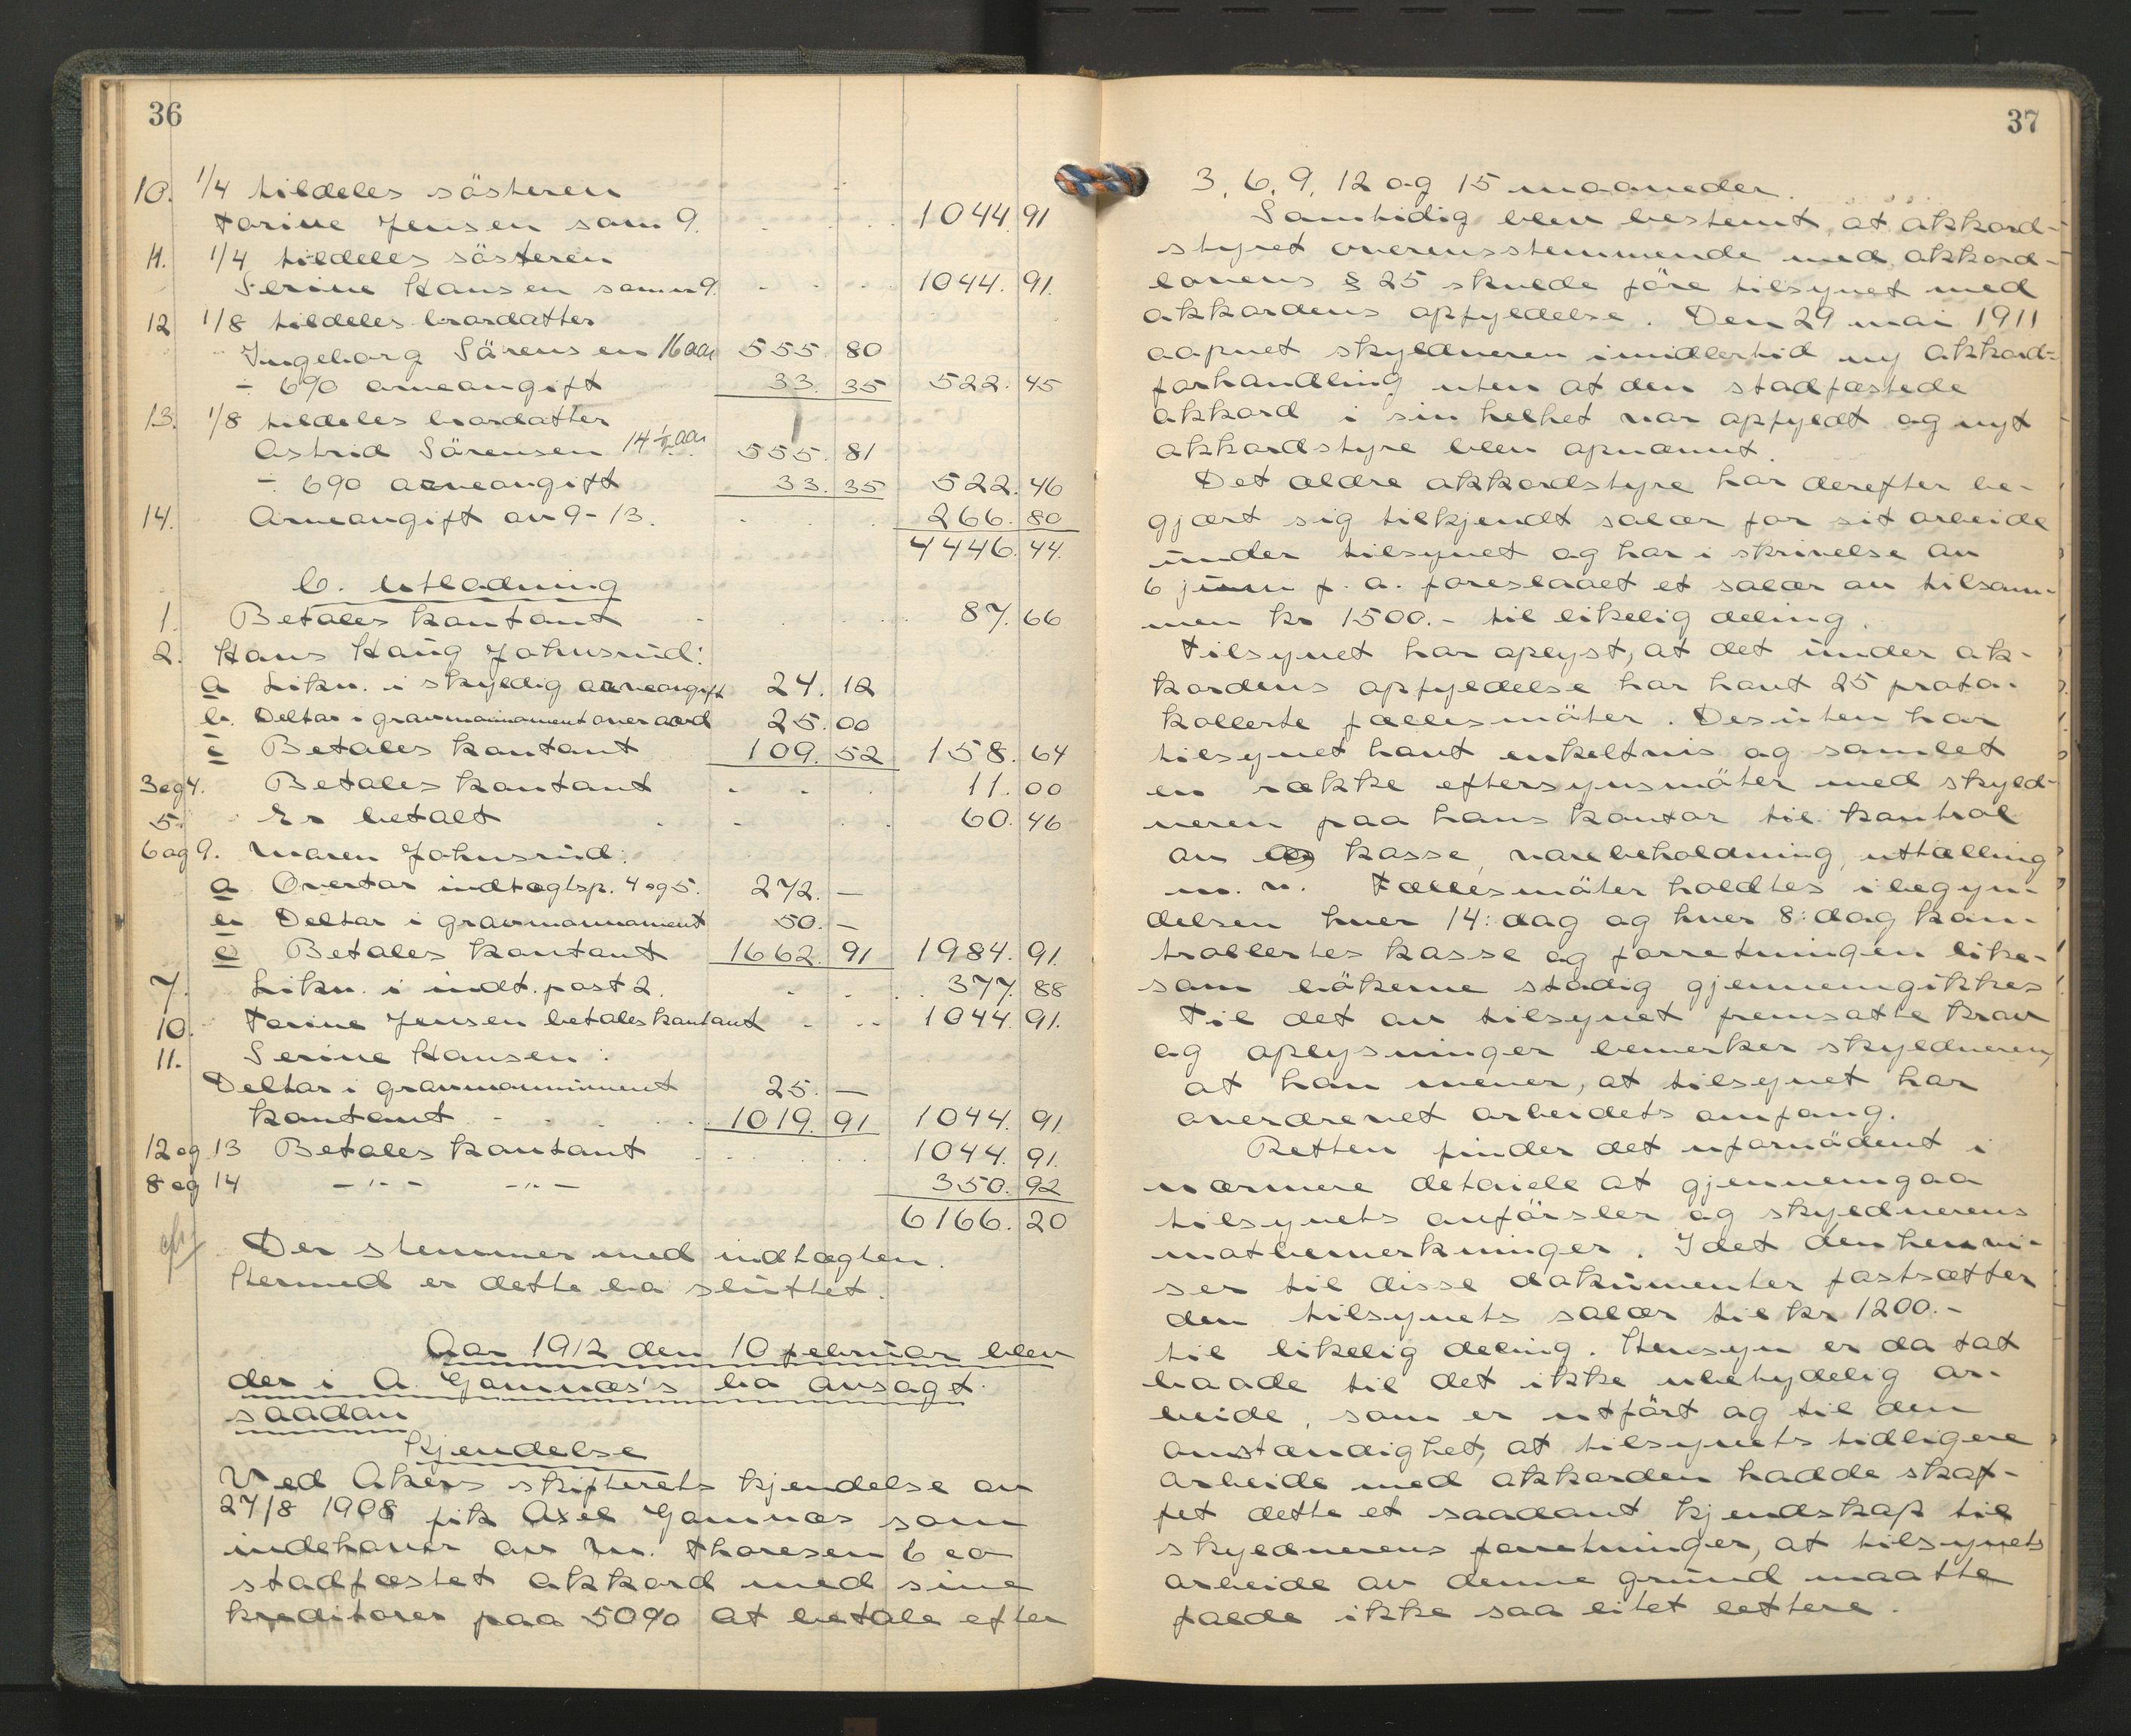 36
10. 1/4 tildeles søsteren
Torine Jensen som 9. 1044 91
11. 1/4 tildeles søsteren
Serine Hansen som 9. 1044. 91.
12 1/8 tildeles brordatter
Ingeborg Sörensen 16 aar 555 80
÷ 6% arveavgift 33. 35 522. 45
13. 1/8 tildeles brordatter
Astrid Sörensen 14 1/2 aar 555. 81
÷ 6% arveavgift 33. 35 522. 46
14. Arveavgift av 9-13. 266. 80
4446. 44.
C. Utlodning
1. Betales kontant 87. 66
2. Hans Haug Johnsrud:
a Likv. i skyldig arveavgift 24. 12
b. Deltar i gravmonument over avd 25. 00
c Betales kontant 109. 52 158. 64
3 og 4. Betales kontant 11. 00
5. Er betalt 60. 46
6 og 9. Maren Johnsrud:
a Overtar indtægtsp. 4 og 5. 272. —
b Deltar i gravmonument 50. —
c Betales kontant 1662. 91 1984. 91.
7. Likv. i indt. post 2. 377. 88
10. Torine Jensen betales kontant 1044. 91.
11. Serine Hansen:
Deltar i gravmonument 25. —
kontant 1019. 91 1044. 91.
12 og 13 Betales kontant 1044. 91.
8 og 14 -"- -"- 350. 92
6166. 20
Der stemmer med indtægten.
Hermed er dette bo sluttet.
Aar 1912 den 10 februar blev
der i A. Gamnæs's bo avsagt
saadan
Kjendelse
Ved Akers skifterets kjendelse av
27/8 1908 fik Axel Gamnæs som
indehaver av M. Thoresen & co
stadfæstet akkord med sine
kreditorer paa 50% at betale efter
37
3, 6, 9, 12 og 15 maaneder.
Samtidig blev bestemt, at akkord-
styret overensstemmende med akkord-
lovens § 25 skulde före tilsynet med
akkordens opfyldelse. Den 29 mai 1911
aapnet skyldneren imidlertid ny akkord-
forhandling uten at den stadfæstede
akkord i sin helhet var opfyldt og nyt
akkordstyre blev opnævnt.
Det ældre akkordstyre har derefter be-
gjært sig tilkjendt salær for sit arbeide
under tilsynet og har i skrivelse av
6 juni f. a. foreslaaet et salær av tilsam-
men kr 1500.- til likelig deling.
Tilsynet har oplyst, at det under ak-
kordens opfyldelse har havt 25 proto-
kollerte fællesmöter. Desuten har
tilsynet havt enkeltvis og samlet
en række eftersynsmöter med skyld-
neren paa hans kontor til kontrol
av kasse, varebeholdning, uttælling
m. v. Fællesmöter holdtes i begyn-
delsen hver 14: dag og hver 8: dag kon-
trollertes kasse og forretningen like-
som bökerne stadig gjennemgikkes
Til det av tilsynet fremsatte krav
og oplysninger bemerker skyldneren,
at han mener, at tilsynet har
overdrevet arbeidets omfang.
Retten finder det ufornödent i
nærmere detaiele at gjennemgaa
tilsynets anförsler og skyldnerens
motbemerkninger. Idet den henvi-
ser til disse dokumenter fastsætter
den tilsynets salær til kr 1200.-
til likelig deling. Hensyn er da tat
baade til det ikke ubetydelig ar-
beide, som er utfört og til den
omstændighet, at tilsynets tidligere
arbeide med akkorden hadde skaf-
fet dette et saadant kjendskap til
skyldnerens forretninger, at tilsynets
arbeide av denne grund maatte
falde ikke saa litet lettere.